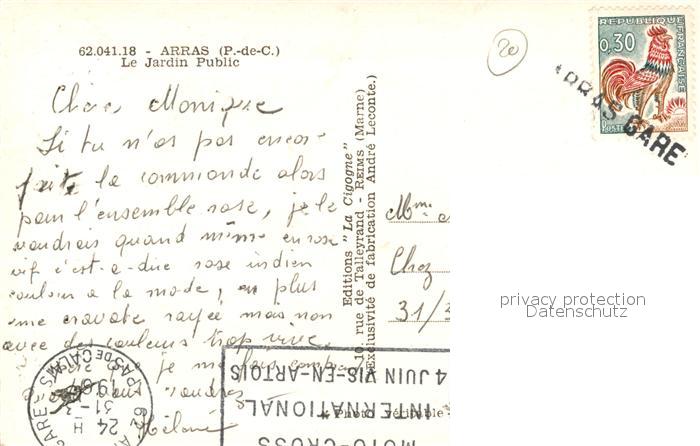 62.041.18 - ARRAS (P.-de-C.)
Le Jardin Public
20
RÉPUBLIQUE FRANÇAISE
0,30
POSTES
ARRAS GARE
Chère Monique
Si tu n'as pas encore
faite la commande alors
pour l'ensemble rose, je le
voudrais quand même en rose
vif c'est-a-dire rose indien
couleur a la mode, en plus
une cravate rayée mais non
avec des couleurs trop vive.
je
voudrez
Hélène
Editions "La Cigogne"
10, rue de Talleyrand - REIMS (Marne)
Exclusivité de fabrication André Leconte.)
Mme
Chez
31/3
privacy protection
Datenschutz
* Photo véritable
MOTO-CROSS
INTERNATIONAL
4 JUIN VIS-EN-ARTOIS
62 ARRAS GARE
PAS DE CALAIS
24 H
31-3